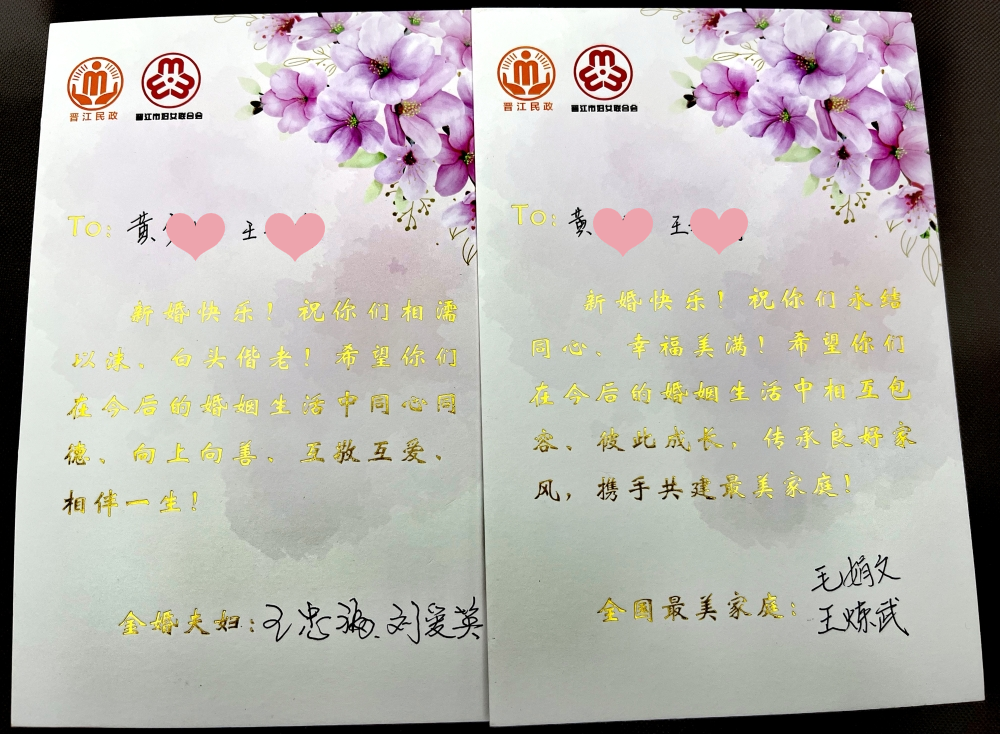 晋江民政
晋江市妇女联合会
To: 黄 王
新婚快乐！祝你们相濡
以沫、白头偕老！希望你们
在今后的婚姻生活中同心同
德、向上向善、互敬互爱、
相伴一生！
金婚夫妇：王忠 刘爱英
晋江民政
晋江市妇女联合会
To: 黄 王
新婚快乐！祝你们永结
同心、幸福美满！希望你们
在今后的婚姻生活中相互包
容、彼此成长，传承良好家
风，携手共建最美家庭！
毛娟文
全国最美家庭：
王炼武